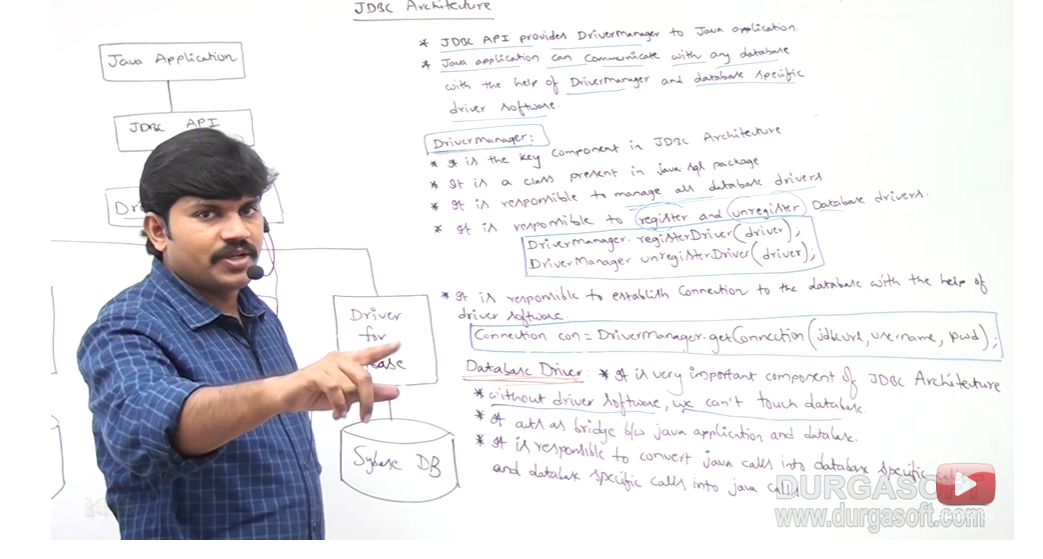 JDBC Architecture
Java Application
JDBC API
Driver
for
Sybase DB
* JDBC API provides DriverManager to Java application.
* Java application can communicate with any database
with the help of DriverManager and database specific
driver software.
DriverManager:
* It is the key component in JDBC Architecture
* It is a class present in java.sql package
* It is responsible to manage all database drivers
* It is responsible to register and unregister Database drivers.
DriverManager.registerDriver(driver);
DriverManager.unregisterDriver(driver);
* It is responsible to establish Connection to the database with the help of
driver software.
Connection con = DriverManager.getConnection(jdbcurl, username, pwd);
Database Driver: * It is very important component of JDBC Architecture
* without driver software, we can't touch database.
* It acts as bridge b/w java application and database.
* It is responsible to convert java calls into database specific
and database specific calls into java calls
DURGASOFT
www.durgasoft.com